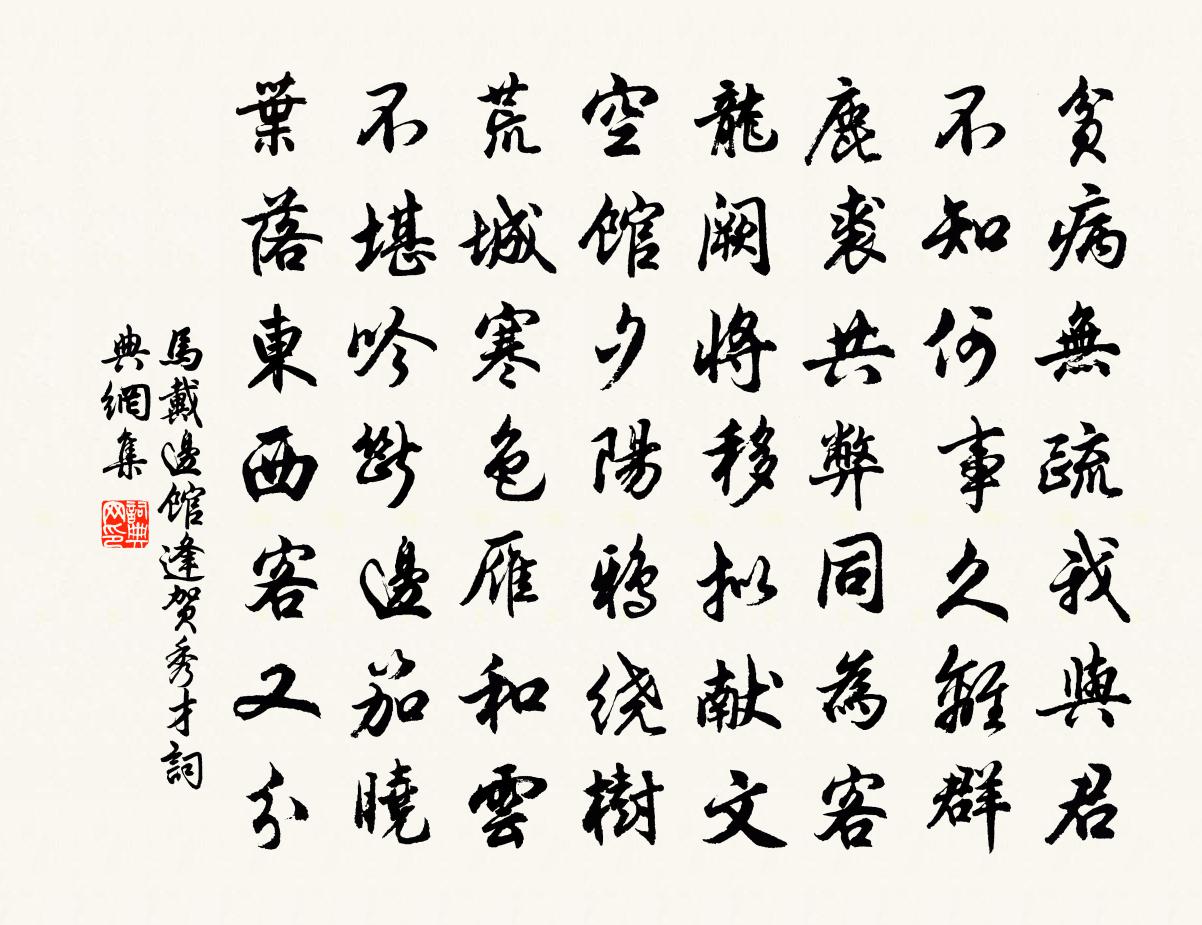 貧病無疏我與君
不知何事久離群
鹿裘共弊同為客
龍闕將移拟献文
空館夕陽鴉绕樹
荒城寒色雁和雲
不堪吟斷邊笳曉
葉落東西客又分
馬戴邊館逢贺秀才詞
典網集
詞典
网印